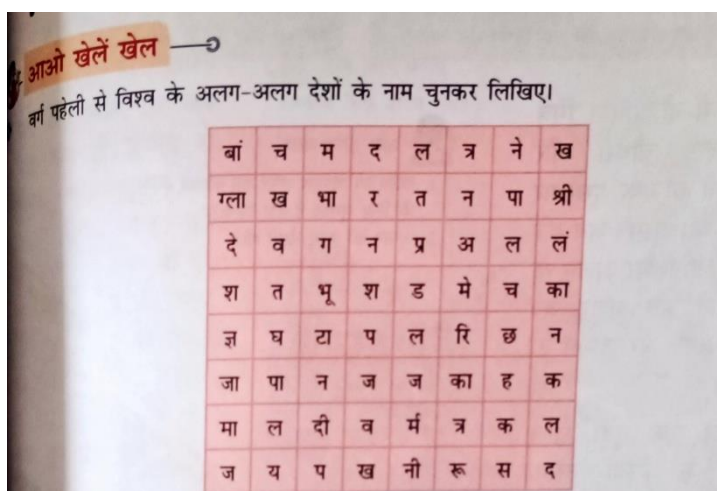 आओ खेलें खेल
वर्ग पहेली से विश्व के अलग-अलग देशों के नाम चुनकर लिखिए।
बां च म द ल त्र ने ख
ग्ला ख भा र त न पा श्री
दे व ग न प्र अ ल लं
श त भू श ड मे च का
ज्ञ घ टा प ल रि छ न
जा पा न ज ज का ह क
मा ल दी व र्म त्र क ल
ज य प ख नी रू स द